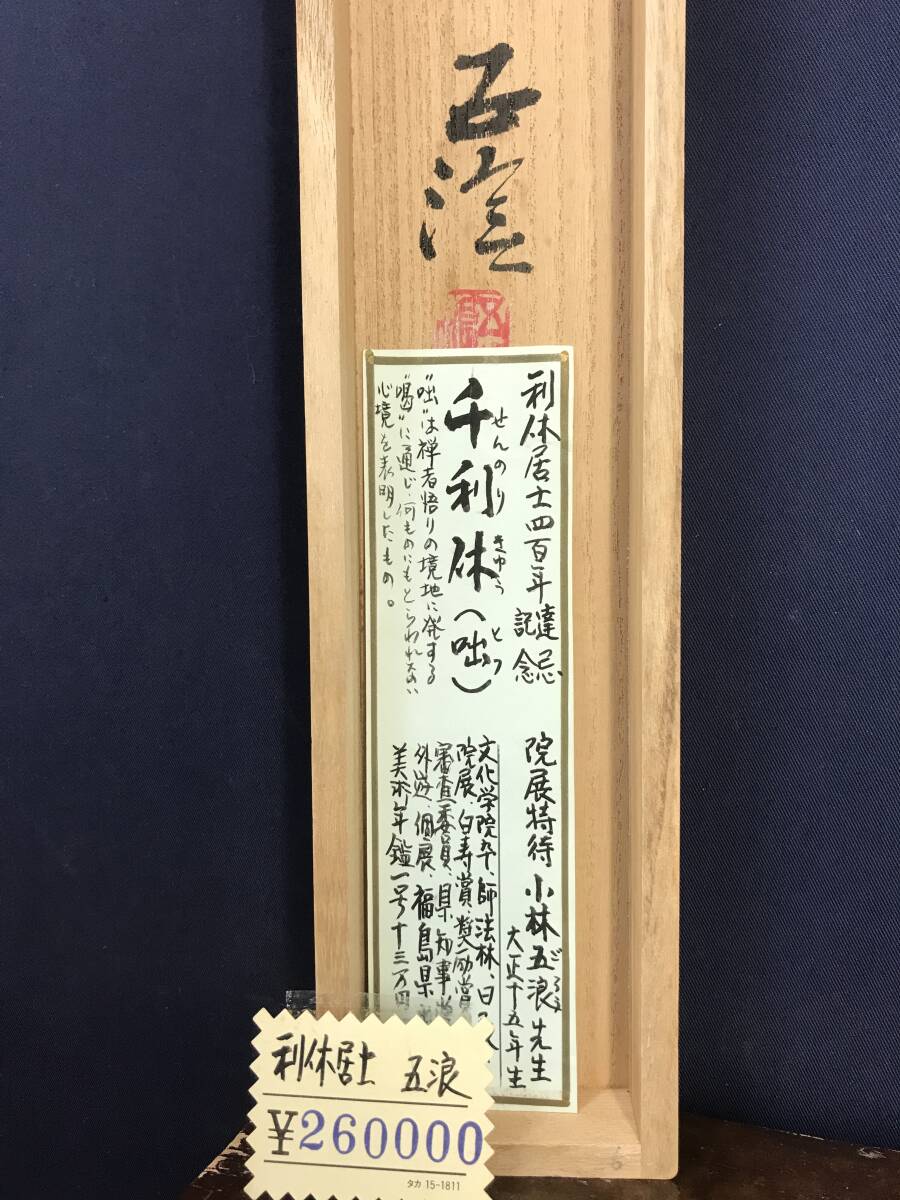 五浪
利休居士四百年遠忌
記念
千利休(咄)
せんのりきゅう とつ
"咄"は禅者悟りの境地に発する
"喝"に通じ、何ものにもとらわれない
心境を表明したもの。
院展特待 小林五浪先生
ごろう
大正十五年生
文化学院卒、師法林、日
院展、白寿賞、奨励賞
審査委員、県知事賞
外遊、個展、福島県
美術年鑑一号十三万円
利休居士 五浪
¥260000
タカ 15-1811